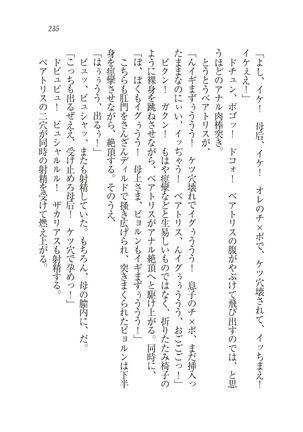 「よし、イケ！　母后、イケ！　オレのチ×ポで、ケツ穴壊されて、イッちまえ！
イケぇえ！」
　ドチュン、ボゴッ！　ドコォ！　ベアトリスの腹がやぶけて飛び出すのでは、と思
うほどのアナル肉棒突き。
　とうとうベアトリスが、
「んイギまずぅうう！　ケツ穴壊れでイグぅううう！　息子のチ×ポ、まだ挿入っ
たままなのにぃい、イッちゃゔ！　ベアトリス、んイグぅううううう、おごごごっ！」
　ビクン！　ガクン！　もはや痙攣などと生易しいものではなく、折りたたみ椅子の
ように裸身を跳ねさせながら、ベアトリスがアナル絶頂へと駆け上がる。同時に、
「ぼ、ぼくもイグぅうう！　母上さま、ビョルンもイギまずぅううう！」
　こちらも肛門をさんざんディルドで掻き広げられ、突きまくられたビョルンは下半
身を痙攣させながら、絶頂する。そのうえ、
「はぅうううう、出るぅー！」
　ビュッ、ビュシャッ、またも射精していた。もちろん、母の膣内に、だ。
「こっちも出るぞええ、受け止めろ母后！　ケツ穴で孕めっ！」
　ドビュビュー！　ビュシャルルル！　ザカリアスも射精する。
　ベアトリスの二穴が同時の射精を受けて燃え上がる。
235